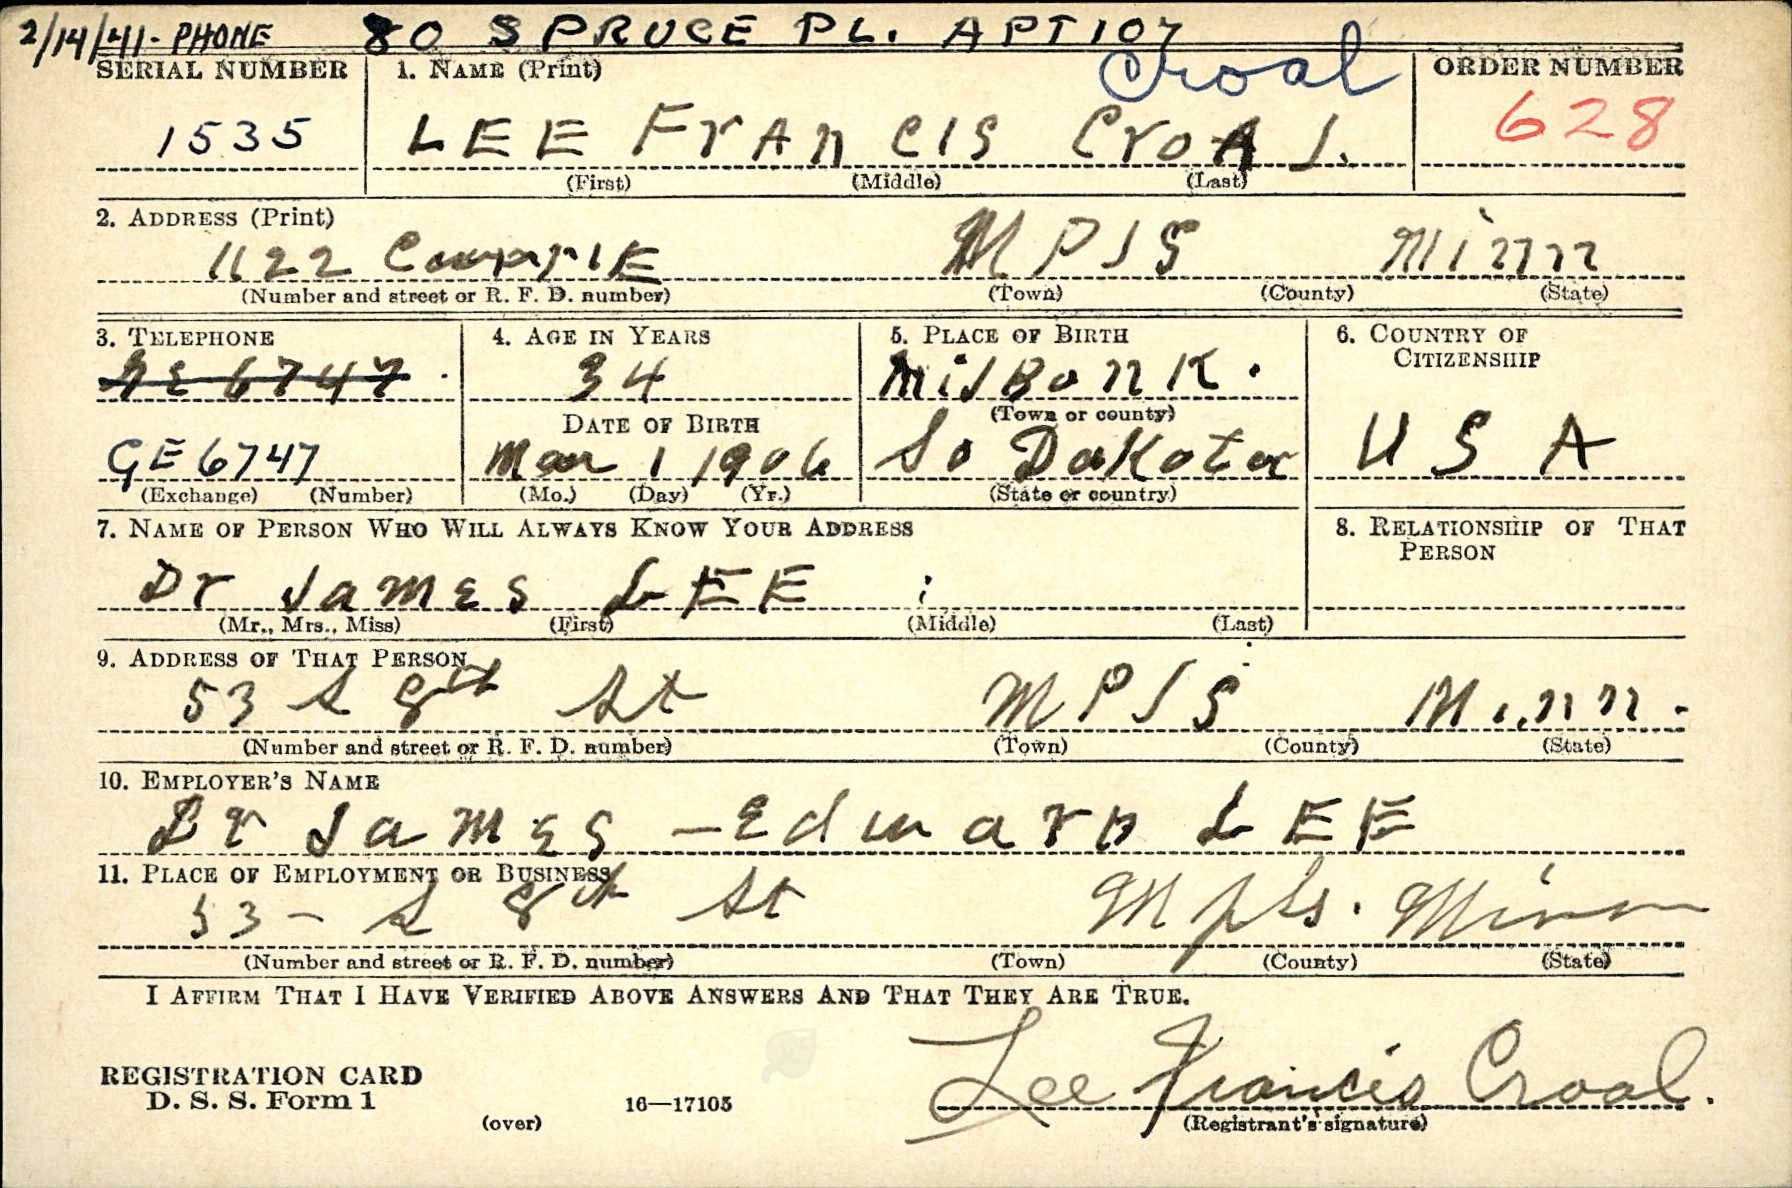 2/14/41 - PHONE 80 SPRUCE PL. APT 107
SERIAL NUMBER 1. NAME (Print) Croal ORDER NUMBER
1535 LEE FrANCIS CroAl. 628
(First) (Middle) (Last)
2. ADDRESS (Print)
1122 MPlS Minn
(Number and street or R. F. D. number) (Town) (County) (State)
3. TELEPHONE 4. AGE IN YEARS 5. PLACE OF BIRTH 6. COUNTRY OF CITIZENSHIP
GE 6747 34 MilBanK.
DATE OF BIRTH (Town or county)
GE 6747 Mar 1 1906 So DaKota USA
(Exchange) (Number) (Mo.) (Day) (Yr.) (State or country)
7. NAME OF PERSON WHO WILL ALWAYS KNOW YOUR ADDRESS 8. RELATIONSHIP OF THAT PERSON
Dr James LEE
(Mr., Mrs., Miss) (First) (Middle) (Last)
9. ADDRESS OF THAT PERSON
53 S 8th St MPlS Minn.
(Number and street or R. F. D. number) (Town) (County) (State)
10. EMPLOYER'S NAME
Dr James - Edward LEE
11. PLACE OF EMPLOYMENT OR BUSINESS
53 - S 8th St Mpls. Minn
(Number and street or R. F. D. number) (Town) (County) (State)
I AFFIRM THAT I HAVE VERIFIED ABOVE ANSWERS AND THAT THEY ARE TRUE.
REGISTRATION CARD
D. S. S. Form 1 16—17105 Lee Francis Croal.
(over) (Registrant's signature)